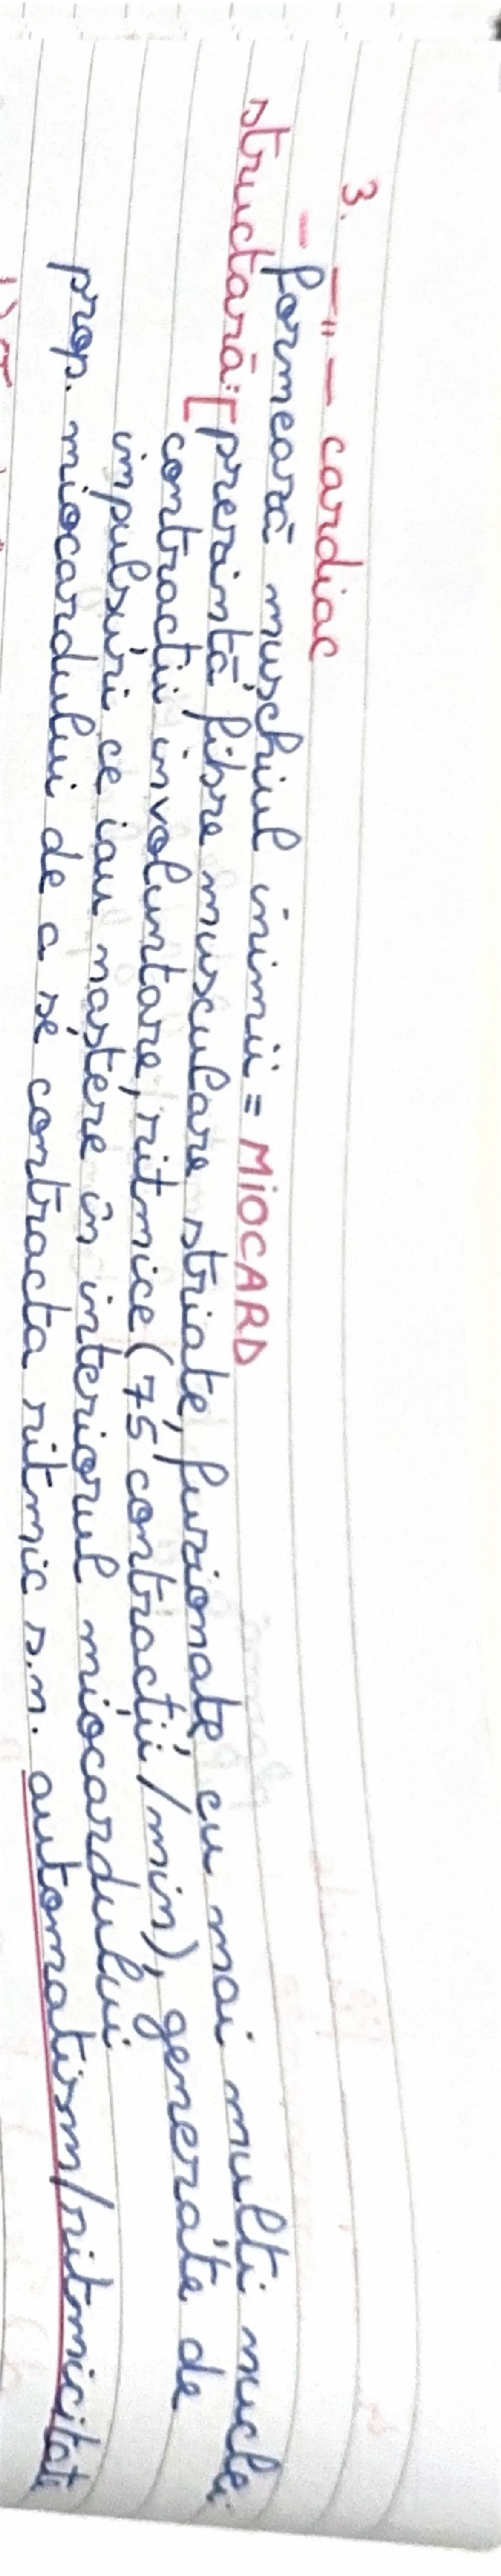 3. —"— cardiac
- formează mușchiul inimii = MIOCARD
structură: [ prezintă fibre musculare striate, fuzionate cu mai mulți nuclei
contracții involuntare, ritmice (75 contracții/min), generate de
impulsuri ce iau naștere în interiorul miocardului
prop. miocardului de a se contracta ritmic s.n. automatism/ritmicitate